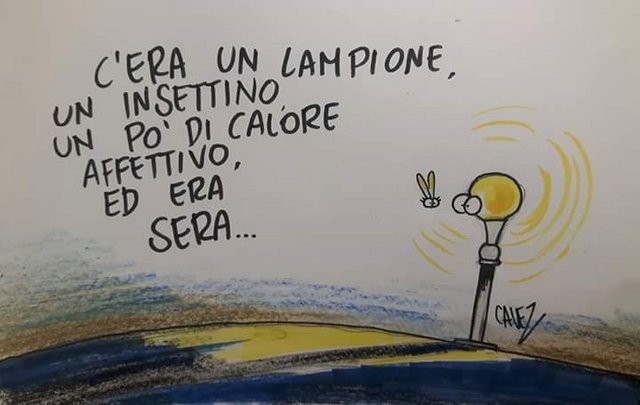 C'ERA UN LAMPIONE,
UN INSETTINO,
UN PO' DI CALORE
AFFETTIVO,
ED ERA
SERA...
CAVEZ